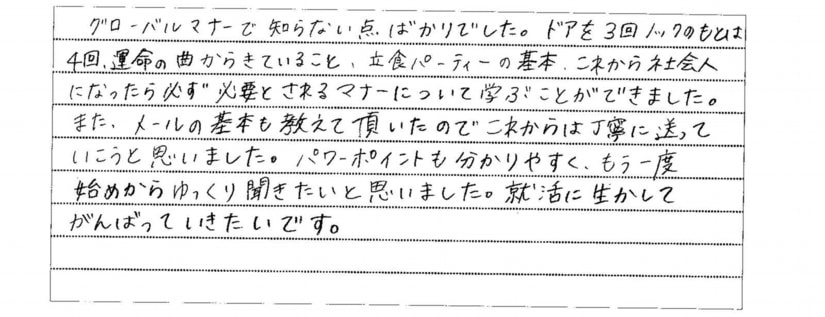 グローバルマナーで知らない点ばかりでした。ドアを3回ノックのもとは
4回、運命の曲からきていること、立食パーティーの基本、これから社会人
になったら必ず必要とされるマナーについて学ぶことができました。
また、メールの基本も教えて頂いたのでこれからは丁寧に送って
いこうと思いました。パワーポイントも分かりやすく、もう一度
始めからゆっくり聞きたいと思いました。就活に生かして
がんばっていきたいです。